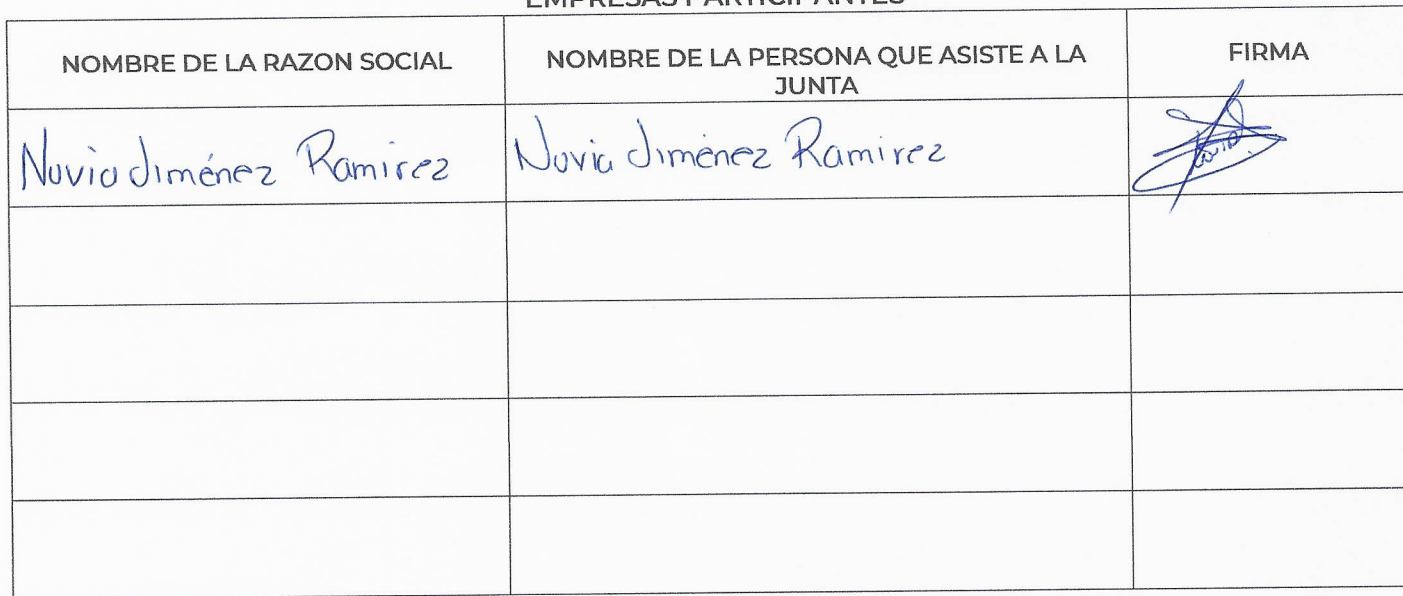 EMPRESAS PARTICIPANTES
NOMBRE DE LA RAZON SOCIAL
NOMBRE DE LA PERSONA QUE ASISTE A LA
JUNTA
FIRMA
Nuvia Jiménez Ramirez
Nuvia Jiménez Ramirez